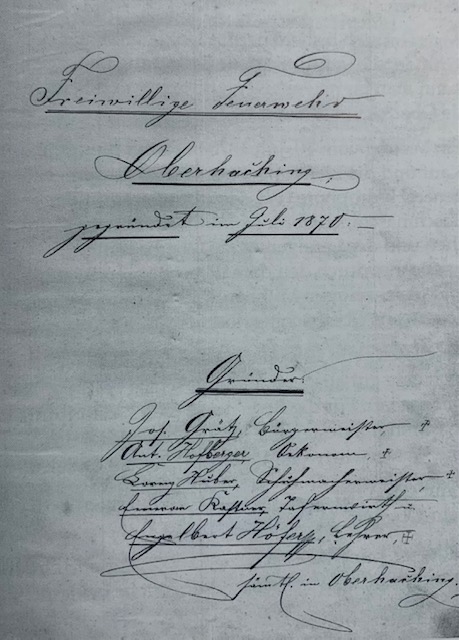 Freiwillige Feuerwehr
Oberhaching.
gegründet im Juli 1870.
Gründer
Jos. Grätz, Bürgermeister, ✝
Ant. Hofberger, Oekonom, ✝
Lorenz Huber, Schuhmachermeister, ✝
Emeran Kastner, Tafernwirth u.
Engelbert Höferer, Lehrer, ✝
sämtl. in Oberhaching.